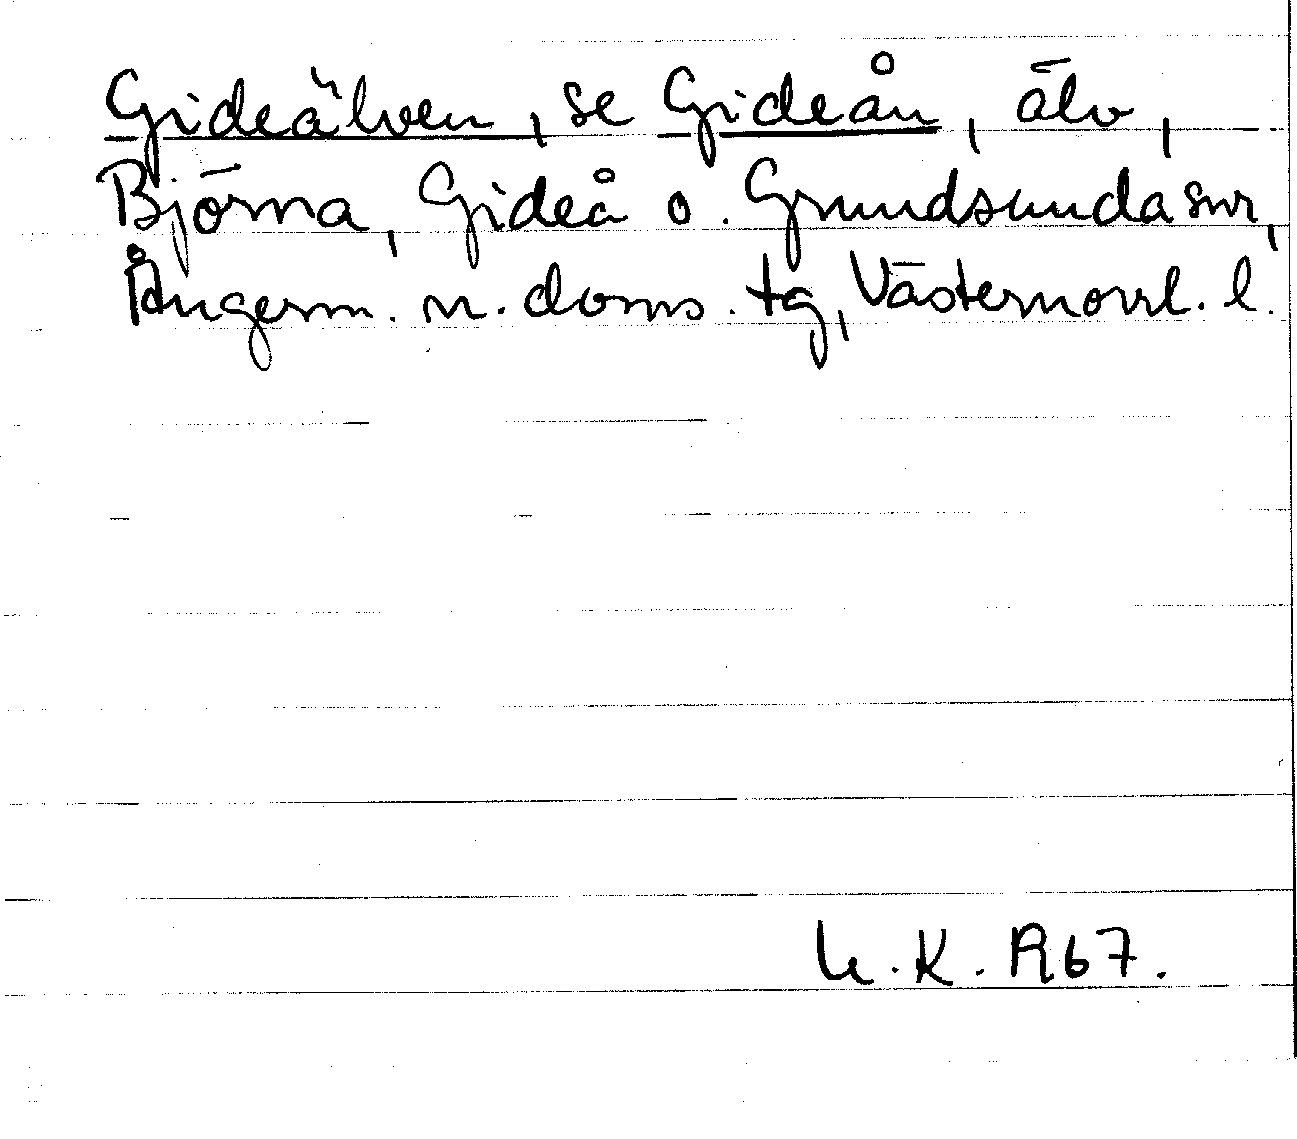 Gideälven, se Gideån, älv,
Björna, Gideå o. Grundsunda snr,
Ångerm. n. doms. tg, Västernorrl. l.
U.K. R67.